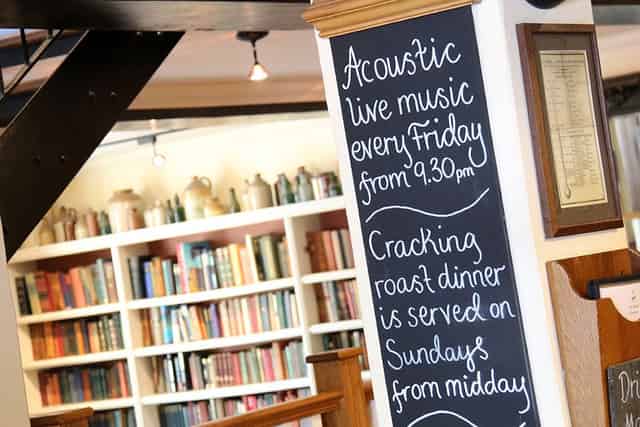 Acoustic
live music
every Friday
from 9.30pm
Cracking
roast dinner
is served on
Sundays
from midday